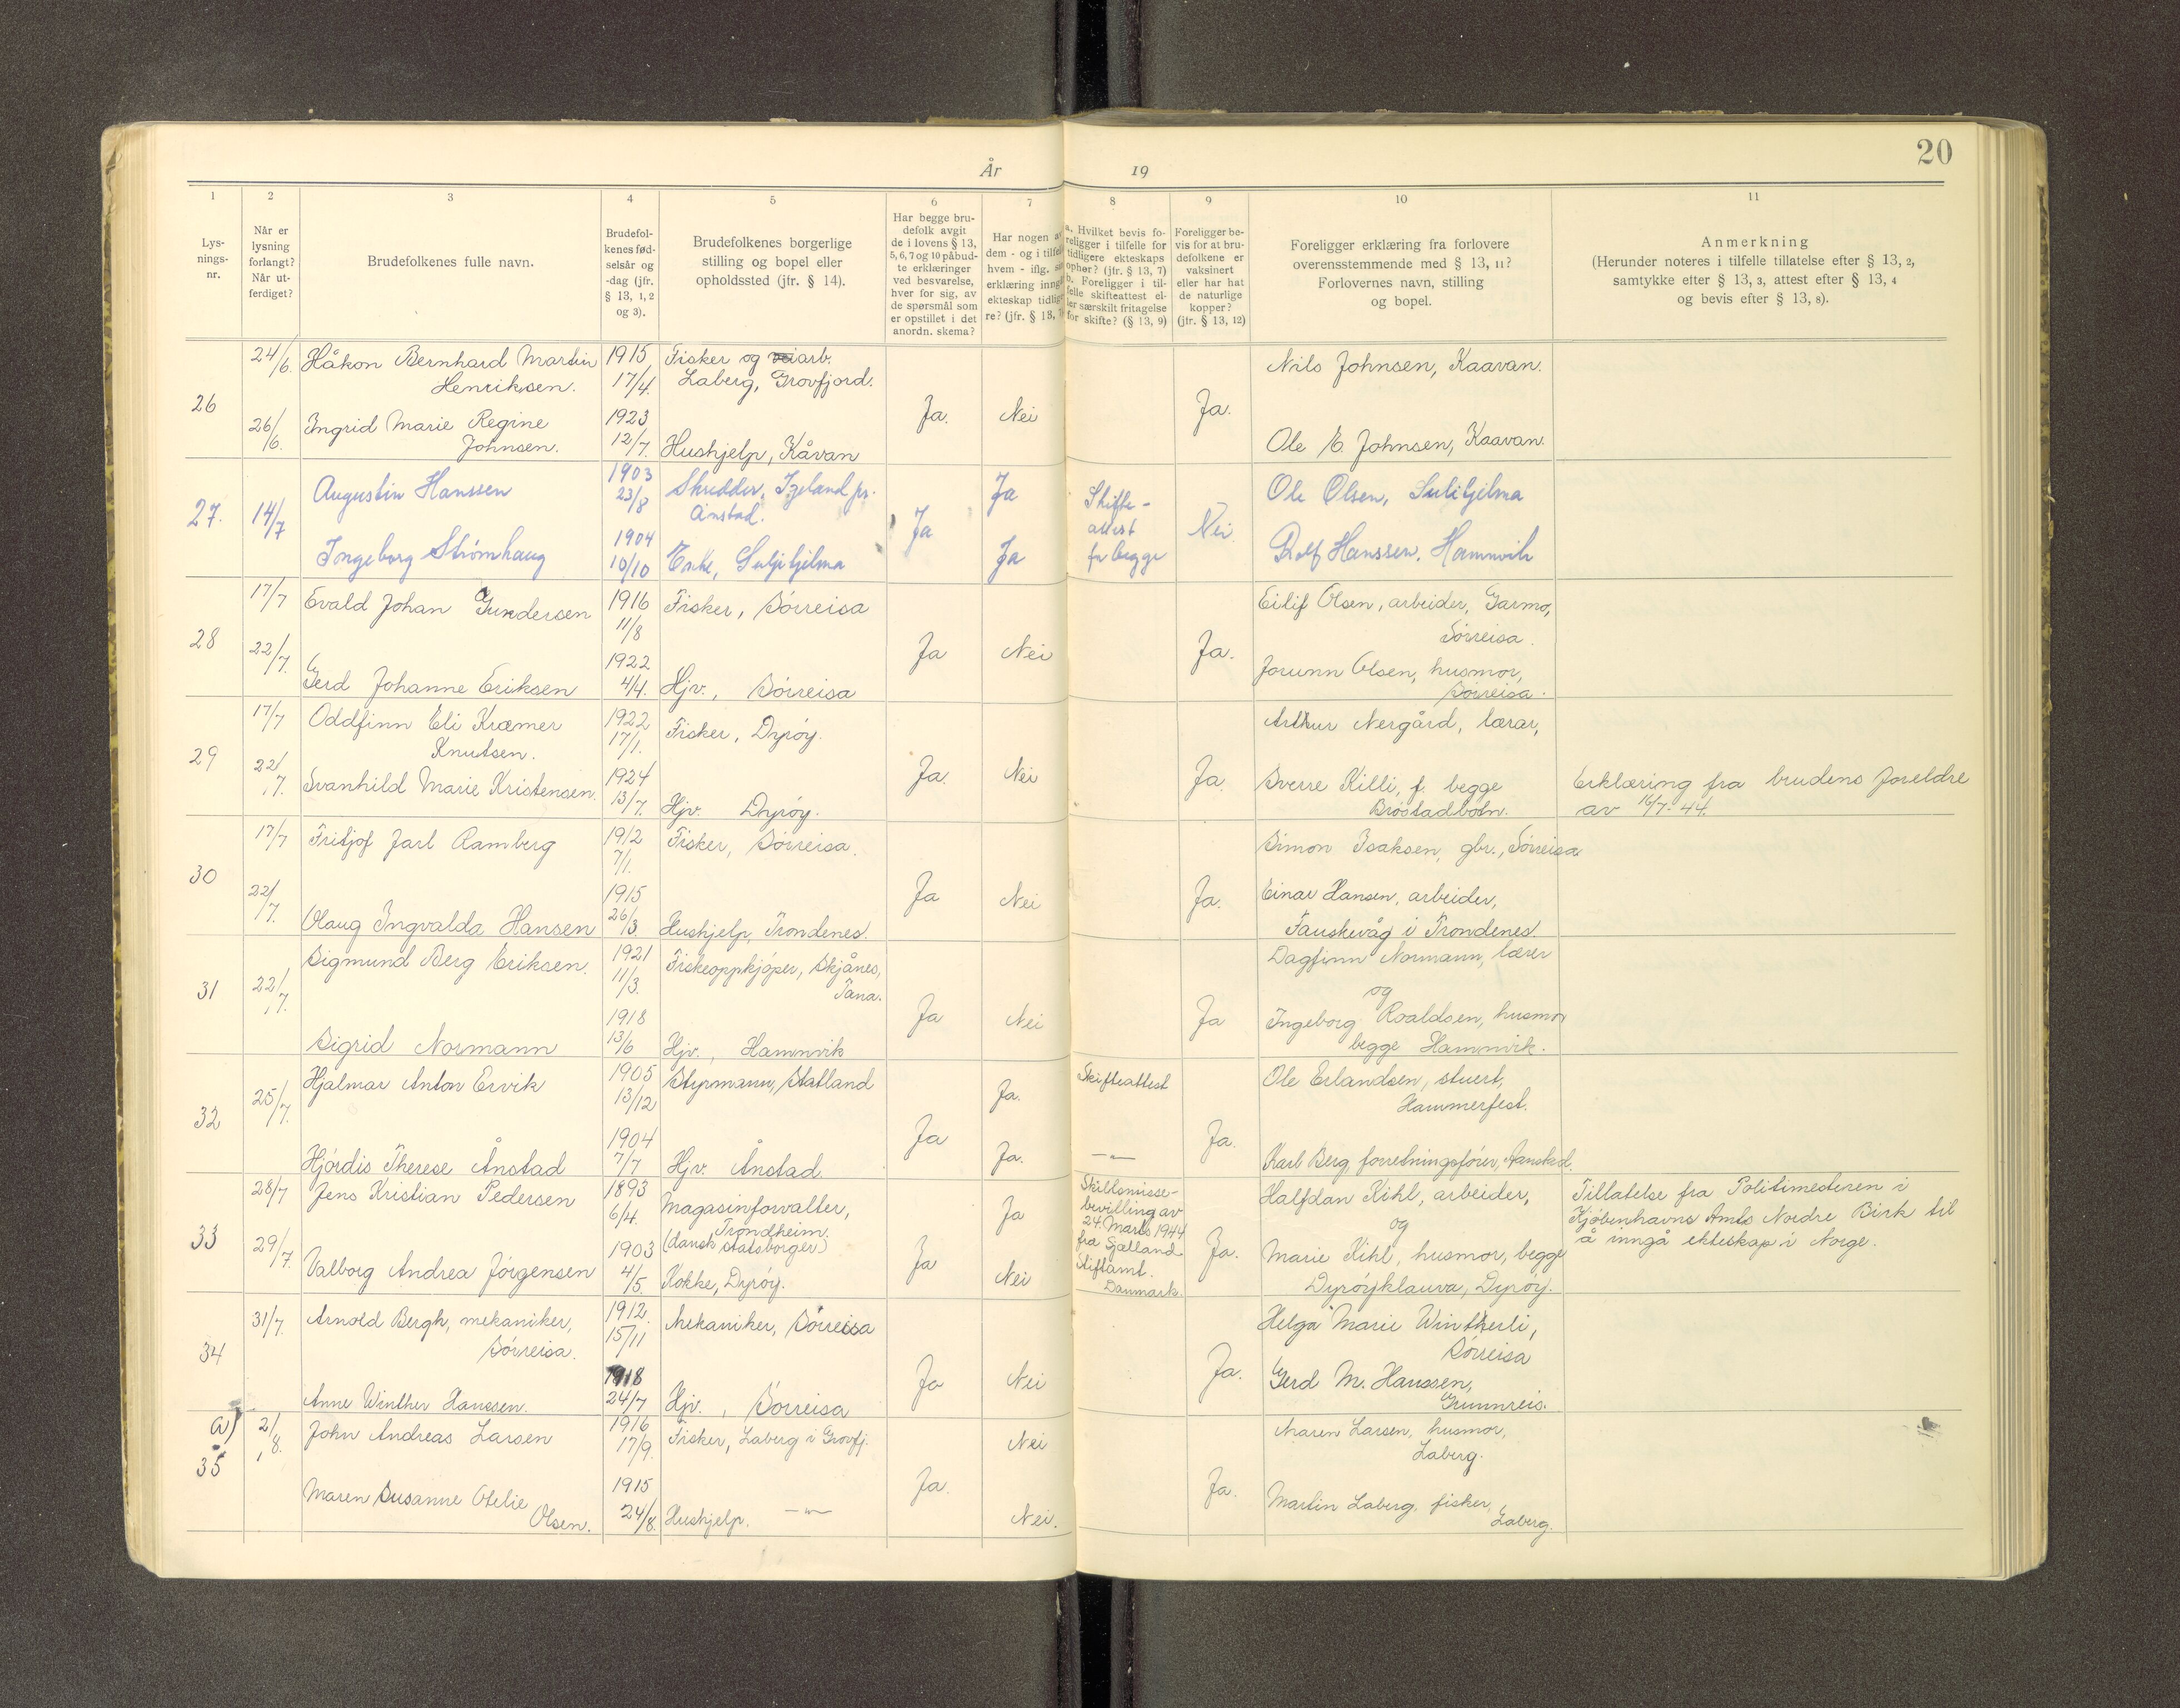 20
År 19
1 2 3 4 5 6 7 8 9 10 11
Lys-
nings-
nr.
Når er
lysning
forlangt?
Når ut-
ferdiget?
Brudefolkenes fulle navn.
Brudefol-
kenes fød-
selsår og
-dag (jfr.
§ 13, 1, 2
og 3).
Brudefolkenes borgerlige
stilling og bopel eller
opholdssted (jfr. § 14).
Har begge bru-
defolk avgit
de i lovens § 13,
5, 6, 7 og 10 påbud-
te erklæringer
ved besvarelse,
hver for sig, av
de spørsmål som
er opstillet i det
anordn. skema?
Har nogen a
dem - og i tilfel
hvem - iflg.
erklæring inng
ekteskap tidlig
re? (jfr. § 13,
a. Hvilket bevis fo-
religger i tilfelle for
tidligere ekteskaps
ophør? (jfr. § 13, 7)
b. Foreligger i til-
felle skifteattest el-
ler særskilt fritagelse
for skifte? (§ 13, 9)
Foreligger be-
vis for at bru-
defolkene er
vaksinert
eller har hat
de naturlige
kopper?
(jfr. § 13, 12)
Foreligger erklæring fra forlovere
overensstemmende med § 13, 11?
Forlovernes navn, stilling
og bopel.
Anmerkning
(Herunder noteres i tilfelle tillatelse efter § 13, 2,
samtykke efter § 13, 3, attest efter § 13, 4
og bevis efter § 13, 8).
26
24/6.
26/6.
Håkon Bernhard Martin
Henriksen.
Ingrid Marie Regine
Johnsen.
1915
17/4.
1923
12/7.
Fisker og veiarb.
Laberg, Grovfjord.
Hushjelp, Kåvan
Ja.
Nei
Ja.
Nils Johnsen, Kaavan.
Ole E. Johnsen, Kaavan.
27.
14/7
Augustin Hanssen
Ingeborg Strømhaug
1903
23/8
1904
10/10
Skredder, Igeland pr.
Ånstad.
Enke, Sulitjelma
Ja
Ja
Ja
Skifte-
attest
for begge
Nei
Ole Olsen, Sulitjelma
Rolf Hanssen, Hamnvik
28
17/7
22/7.
Evald Johan Gundersen
Gerd Johanne Eriksen
1916
11/8
1922
4/4.
Fisker, Sörreisa
Hjv., Sörreisa
Ja
Nei
Ja.
Eilif Olsen, arbeider, Garmo,
Sörreisa.
Jorunn Olsen, husmor,
Sörreisa.
29
17/7
22/7.
Oddfinn Eli Kræmer
Knutsen.
Svanhild Marie Kristensen.
1922
17/1.
1924
13/7.
Fisker, Dyröy.
Hjv. Dyröy.
Ja.
Nei
Ja.
Arthur Nergård, lærar,
Sverre Killi, f. begge
Bröstadbotn.
Erklæring fra brudens foreldre
av 16/7-44.
30
17/7
22/7.
Fritjof Jarl Ramberg
Olaug Ingvalda Hansen
1912
7/1.
1915
26/3
Fisker, Sörreisa.
Hushjelp, Trondenes.
Ja
Nei
Ja.
Simon Isaksen, gbr., Sörreisa
Einar Hansen, arbeider,
Fauskevåg i Trondenes.
31
22/7.
Sigmund Berg Eriksen.
Sigrid Normann
1921
11/3.
1918
13/6
Fiskeoppkjöper, Skjånes,
Tana.
Hjv., Hamnvik
Ja
Nei
Ja
Dagfinn Normann, lærer
og
Ingeborg Roaldsen, husmor
begge Hamnvik.
32
25/7.
Hjalmar Anton Ervik
Hjördis Therese Ånstad
1905
13/12
1904
7/7
Styrmann, Statland
Hjv. Ånstad.
Ja
Ja.
Ja.
Skifteattest
—"—
Ja.
Ole Erlandsen, stuert,
Hammerfest.
Karl Berg, forretningsförer, Aanstad.
33
28/7
29/7.
Jens Kristian Pedersen
Valborg Andrea Jörgensen
1893
6/4.
1903
4/5.
Magasinforvalter,
Trondheim.
(dansk statsborger)
Kokke, Dyröy.
Ja
Ja
Nei
Skilsmisse-
bevilling av
24. Marts 1944
fra Sjælland
Stiftamt.
Danmark.
Ja.
Halfdan Kihl, arbeider,
og
Marie Kihl, husmor, begge
Dyröyklauva, Dyröy.
Tillatelse fra Politimesteren i
Kjöbenhavns Amts Nordre Birk til
å inngå ekteskap i Norge.
34
31/7.
Arnold Bergh, mekaniker,
Sörreisa.
Anne Winther Hanssen.
1912.
15/11
1918
24/7
Mekaniker, Sörreisa
Hjv., Sörreisa
Ja
Nei
Ja.
Helga Marie Wintherli,
Sörreisa
Gerd M. Hanssen,
Grunnreis.
a)
35
2/8.
John Andreas Larsen
Maren Susanne Otelie
Olsen.
1916
17/9.
1915
24/8.
Fisker, Laberg i Grovfj.
Hushjelp. —"—
Ja.
Nei
Nei.
Ja.
Maren Larsen, husmor,
Laberg.
Martin Laberg, fisker,
Laberg.